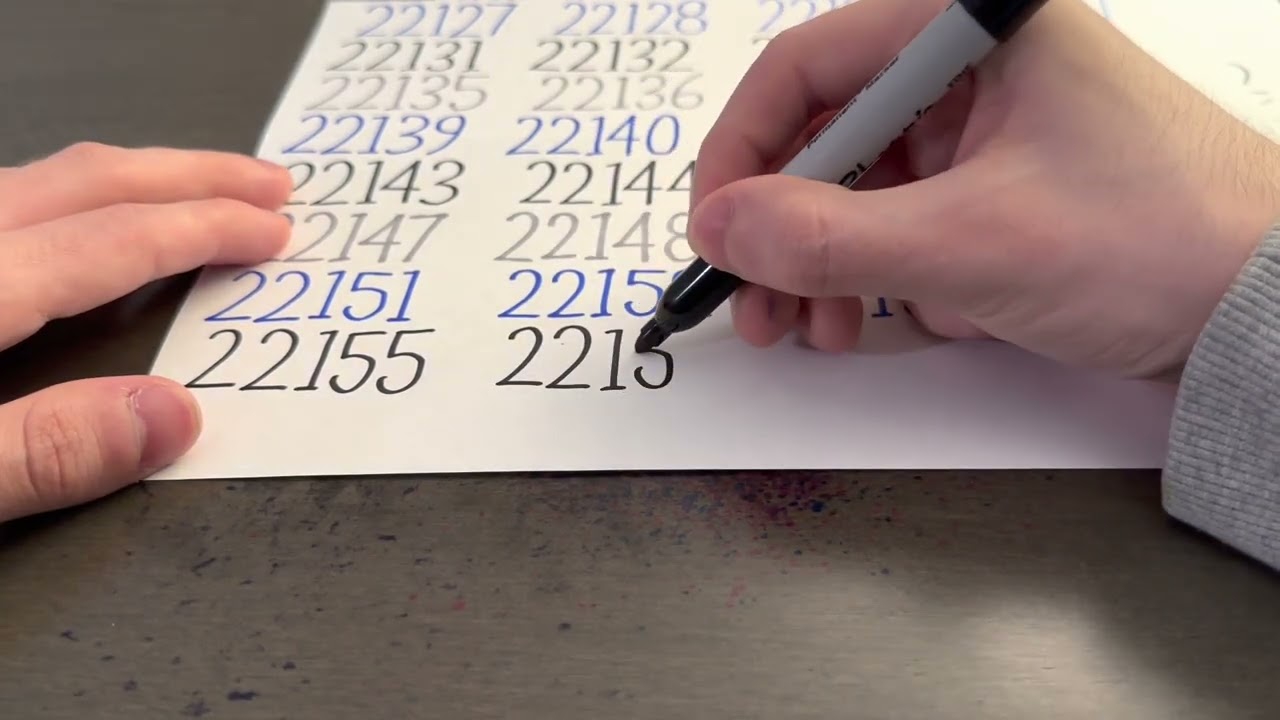 22127 22128 22
22131 22132
22135 22136
22139 22140
22143 22144
22147 22148
22151 2215
22155 2215
Permanent